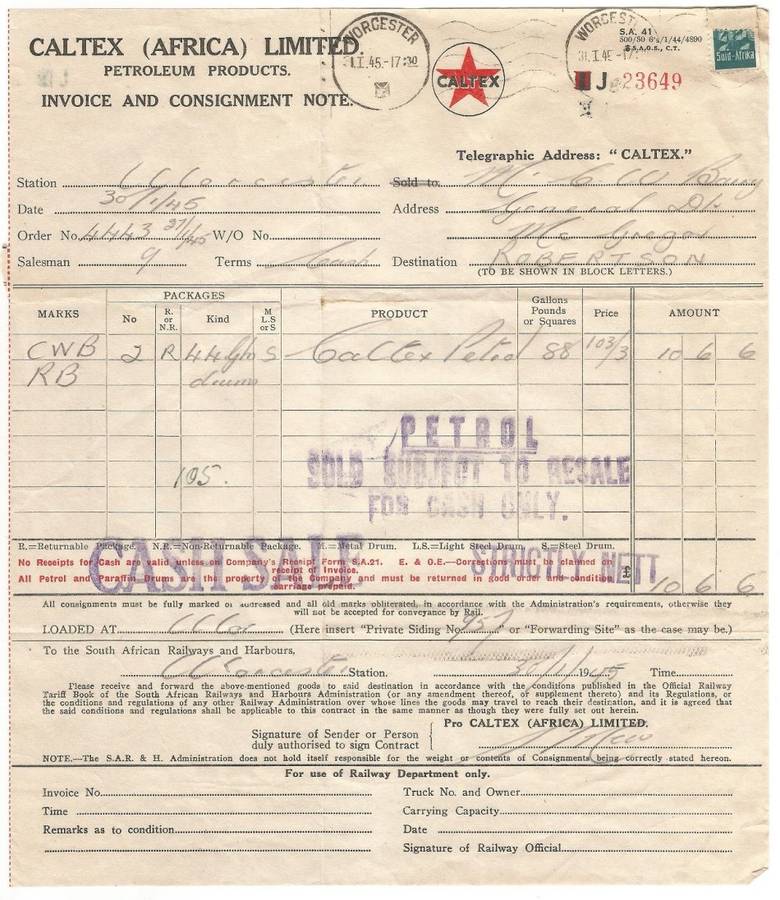 CALTEX (AFRICA) LIMITED.
PETROLEUM PRODUCTS.
INVOICE AND CONSIGNMENT NOTE.
WORCESTER
I.I.45.-17:30
CALTEX
WORCEST
S.A. 41
S.A.O.S., C.T.
Suid-Afrika
J 23649
Telegraphic Address: "CALTEX."
Station Worcester
Sold to Mr C W
Date 30/1/45
Address General Dlr
Order No. 4443 27/1/45 W/O No.
Mc Gregor
Salesman 9 Terms Cash
Destination ROBERTSON
(TO BE SHOWN IN BLOCK LETTERS.)
MARKS PACKAGES PRODUCT Gallons Pounds or Squares Price AMOUNT
No R. or N.R. Kind M L.S or S
CWB 2 R 44 gln S Caltex Petrol 88 103/3 10 6 6
RB drums
PETROL
105. SOLD SUBJECT TO RESALE
FOR CASH ONLY.
R.=Returnable Package. N.R.=Non-Returnable Package. M.=Metal Drum. L.S.=Light Steel Drum. S.=Steel Drum.
CASH SALE STRICTLY NETT
No Receipts for Cash are valid unless on Company's Receipt Form S.A.21. E. & O.E.—Corrections must be claimed on
receipt of Invoice.
All Petrol and Paraffin Drums are the property of the Company and must be returned in good order and condition
carriage prepaid.
£ 10 6 6
All consignments must be fully marked or addressed and all old marks obliterated, in accordance with the Administration's requirements, otherwise they
will not be accepted for conveyance by Rail.
LOADED AT Wor (Here insert "Private Siding No. 957 " or "Forwarding Site" as the case may be.)
To the South African Railways and Harbours,
Worcester Station. 30/1/1945 Time
Please receive and forward the above-mentioned goods to said destination in accordance with the conditions published in the Official Railway
Tariff Book of the South African Railways and Harbours Administration (or any amendment thereof, or supplement thereto) and its Regulations, or
the conditions and regulations of any other Railway Administration over whose lines the goods may travel to reach their destination, and it is agreed that
the said conditions and regulations shall be applicable to this contract in the same manner as though they were fully set out herein.
Pro CALTEX (AFRICA) LIMITED.
Signature of Sender or Person
duly authorised to sign Contract
NOTE.—The S.A.R. & H. Administration does not hold itself responsible for the weight or contents of Consignments being correctly stated hereon.
For use of Railway Department only.
Invoice No. Truck No. and Owner
Time Carrying Capacity
Remarks as to condition Date
Signature of Railway Official